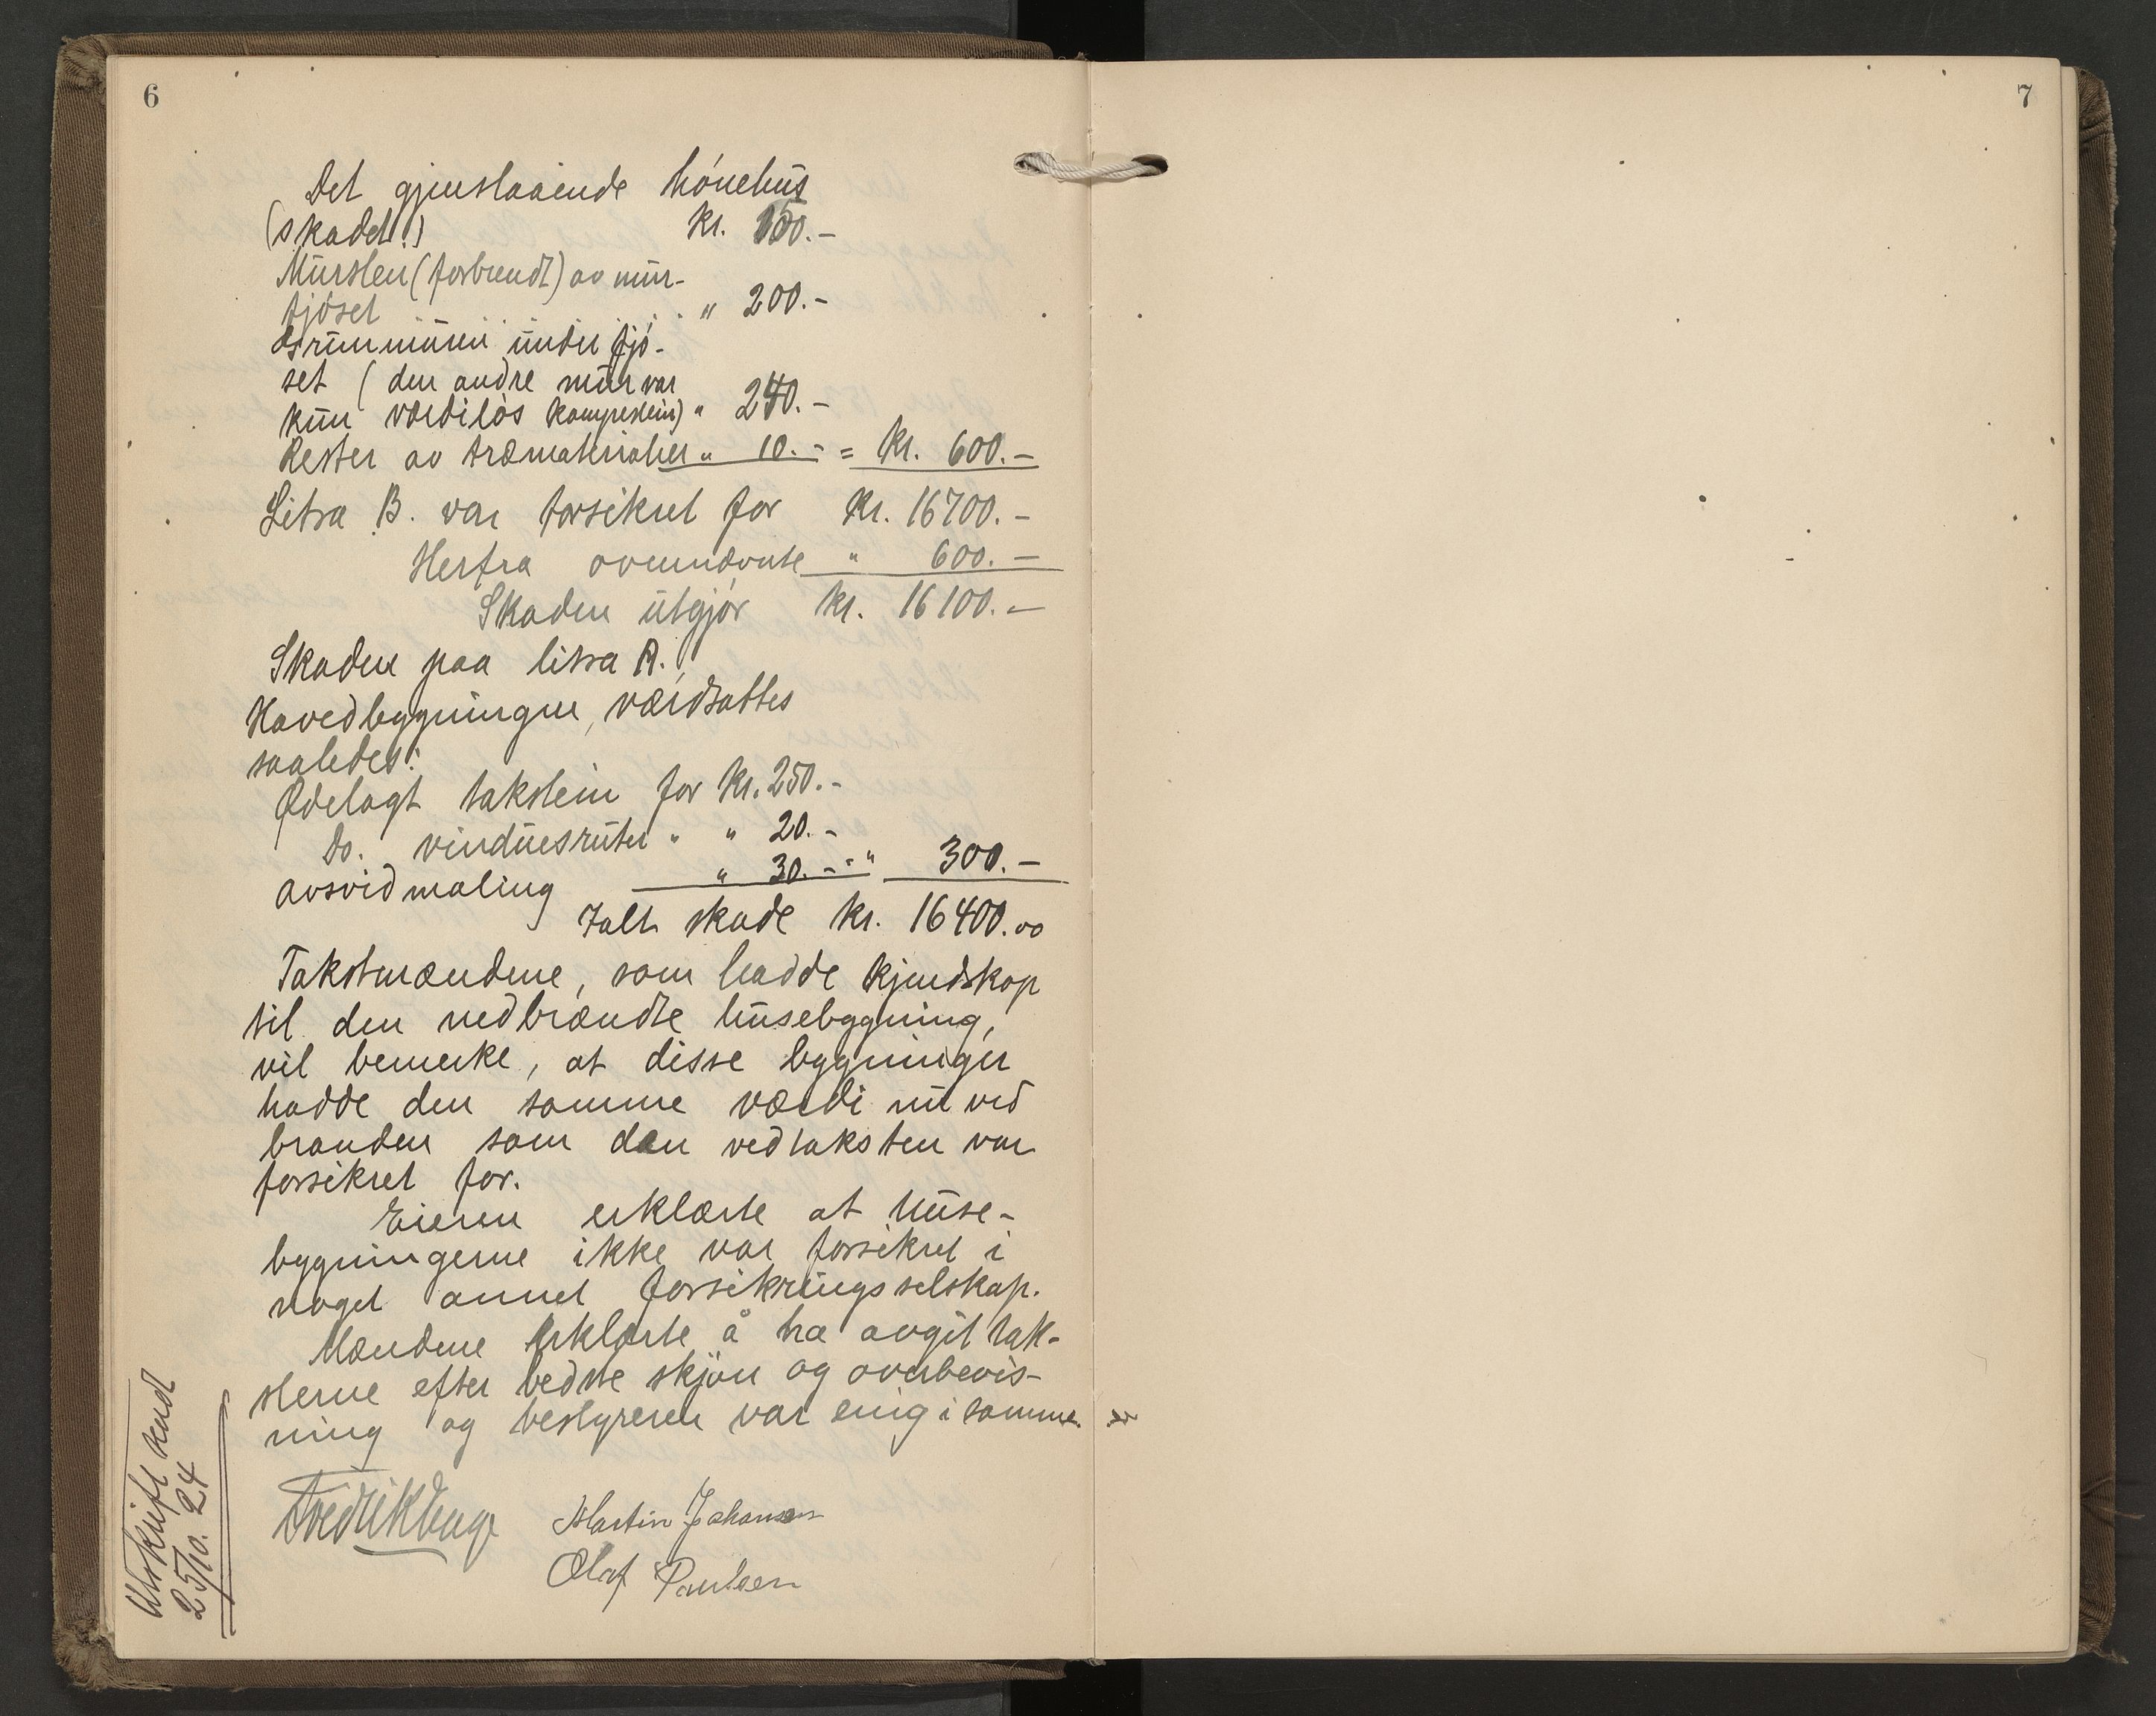 6
7
Det gjenstaaende hónehus
(skadet!) kr. 150.-
Mursten (forbrendt) av mur-
fjöset " 200.-
Grunmuren under fjó-
set (den andre mur var
kun værdilòs kampestein) " 240.-
Rester av træmaterialier " 10.- = kr. 600.-
Litra B. var forsikret for kr. 16700.-
Herfra ovennævnte " 600.-
Skaden utgjór kr. 16100.-
Skaden paa litra A.,
Hovedbygningen, værdsattes
saaledes:
Ødelagt takstein for kr. 250.-
Do. vinduesruter " " 20.-
avsvidmaling " 30.- = " 300.-
Ialt skade kr. 16400.00
Takstmændene, som hadde kjendskap
til den nedbrændte husebygning,
vil bemerke, at disse bygninger
hadde den samme værdi nu ved
branden som den ved taksten var
forsikret for.
Eieren erklærte at huse-
bygningerne ikke var forsikret i
noget annet forsikringsselskap.
Mændene erklærte å ha avgit tak-
sterne efter bedste skjön og overbevis-
ning og bestyreren var enig i samme.
Martin Johansen
Olaf Paulsen
Utskrift sendt
25/10. 24